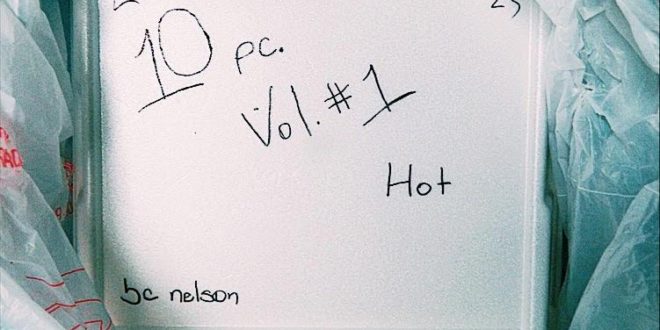 10 pc.
Vol. #1
Hot
bc nelson